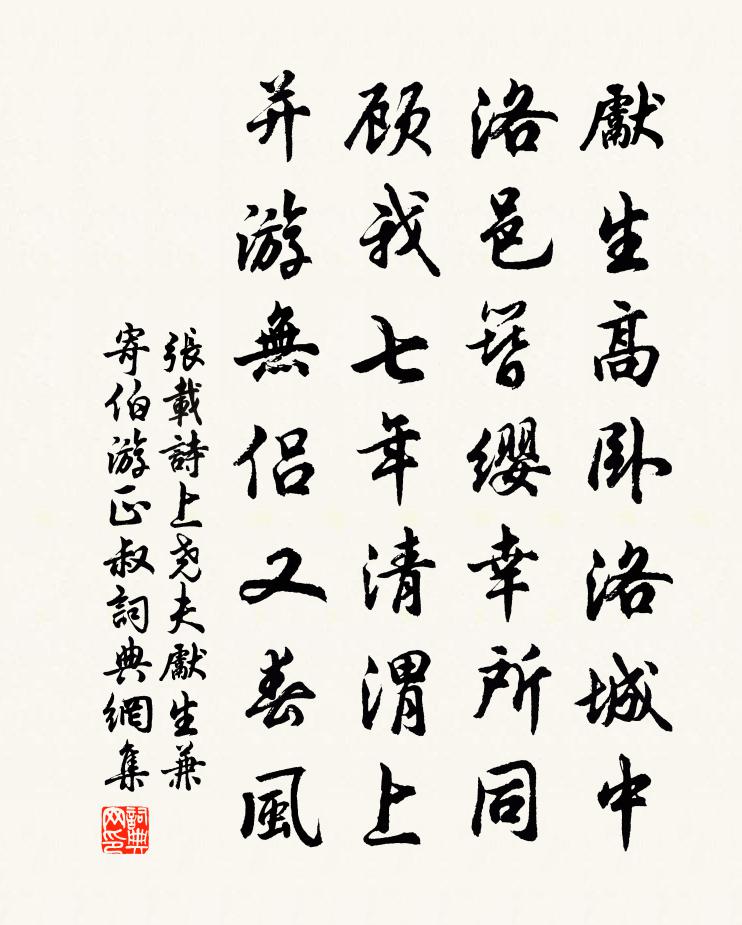 獻生高卧洛城中
洛邑簪纓幸所同
顾我七年清渭上
并游無侣又春風
張載詩上尧夫獻生兼
寄伯游正叔詞典網集
詞典
网印